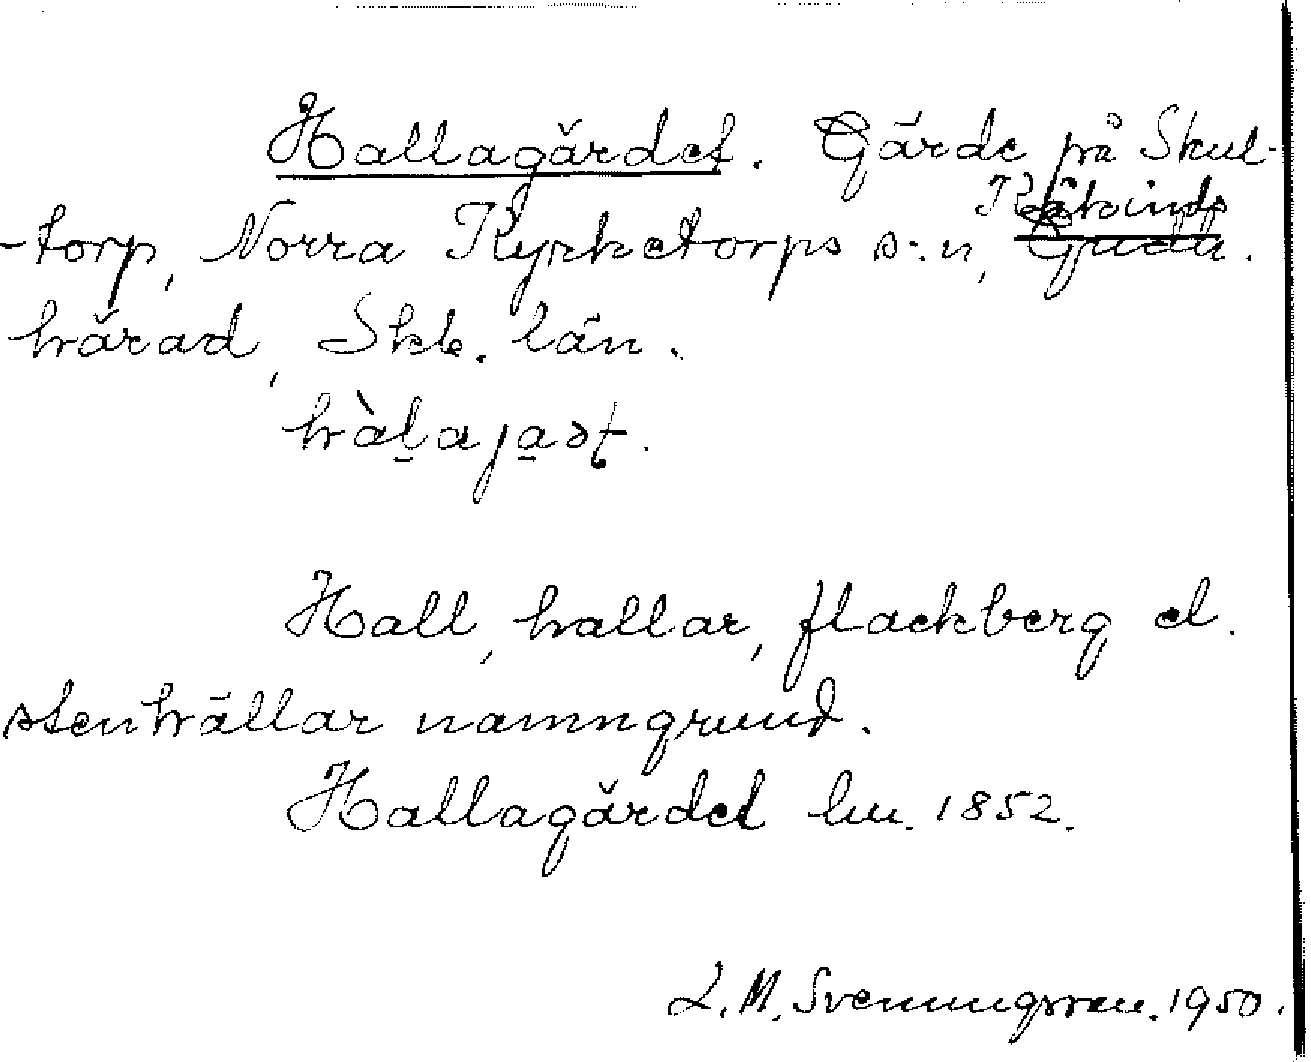 Hallagärdet. Gärde på Skul-
Kåkinds
-torp, Norra Kyrketorps s:n, Gudh.
härad, Skb. län.
hàḷaja̲ṣt.
Hall, hallar, flackberg el.
stenhällar namngrund.
Hallagärdet lm. 1852.
L. M. Svenungsson. 1950.